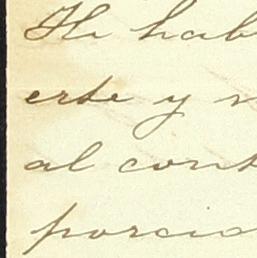 He hab
erte y n
al cont
porcio